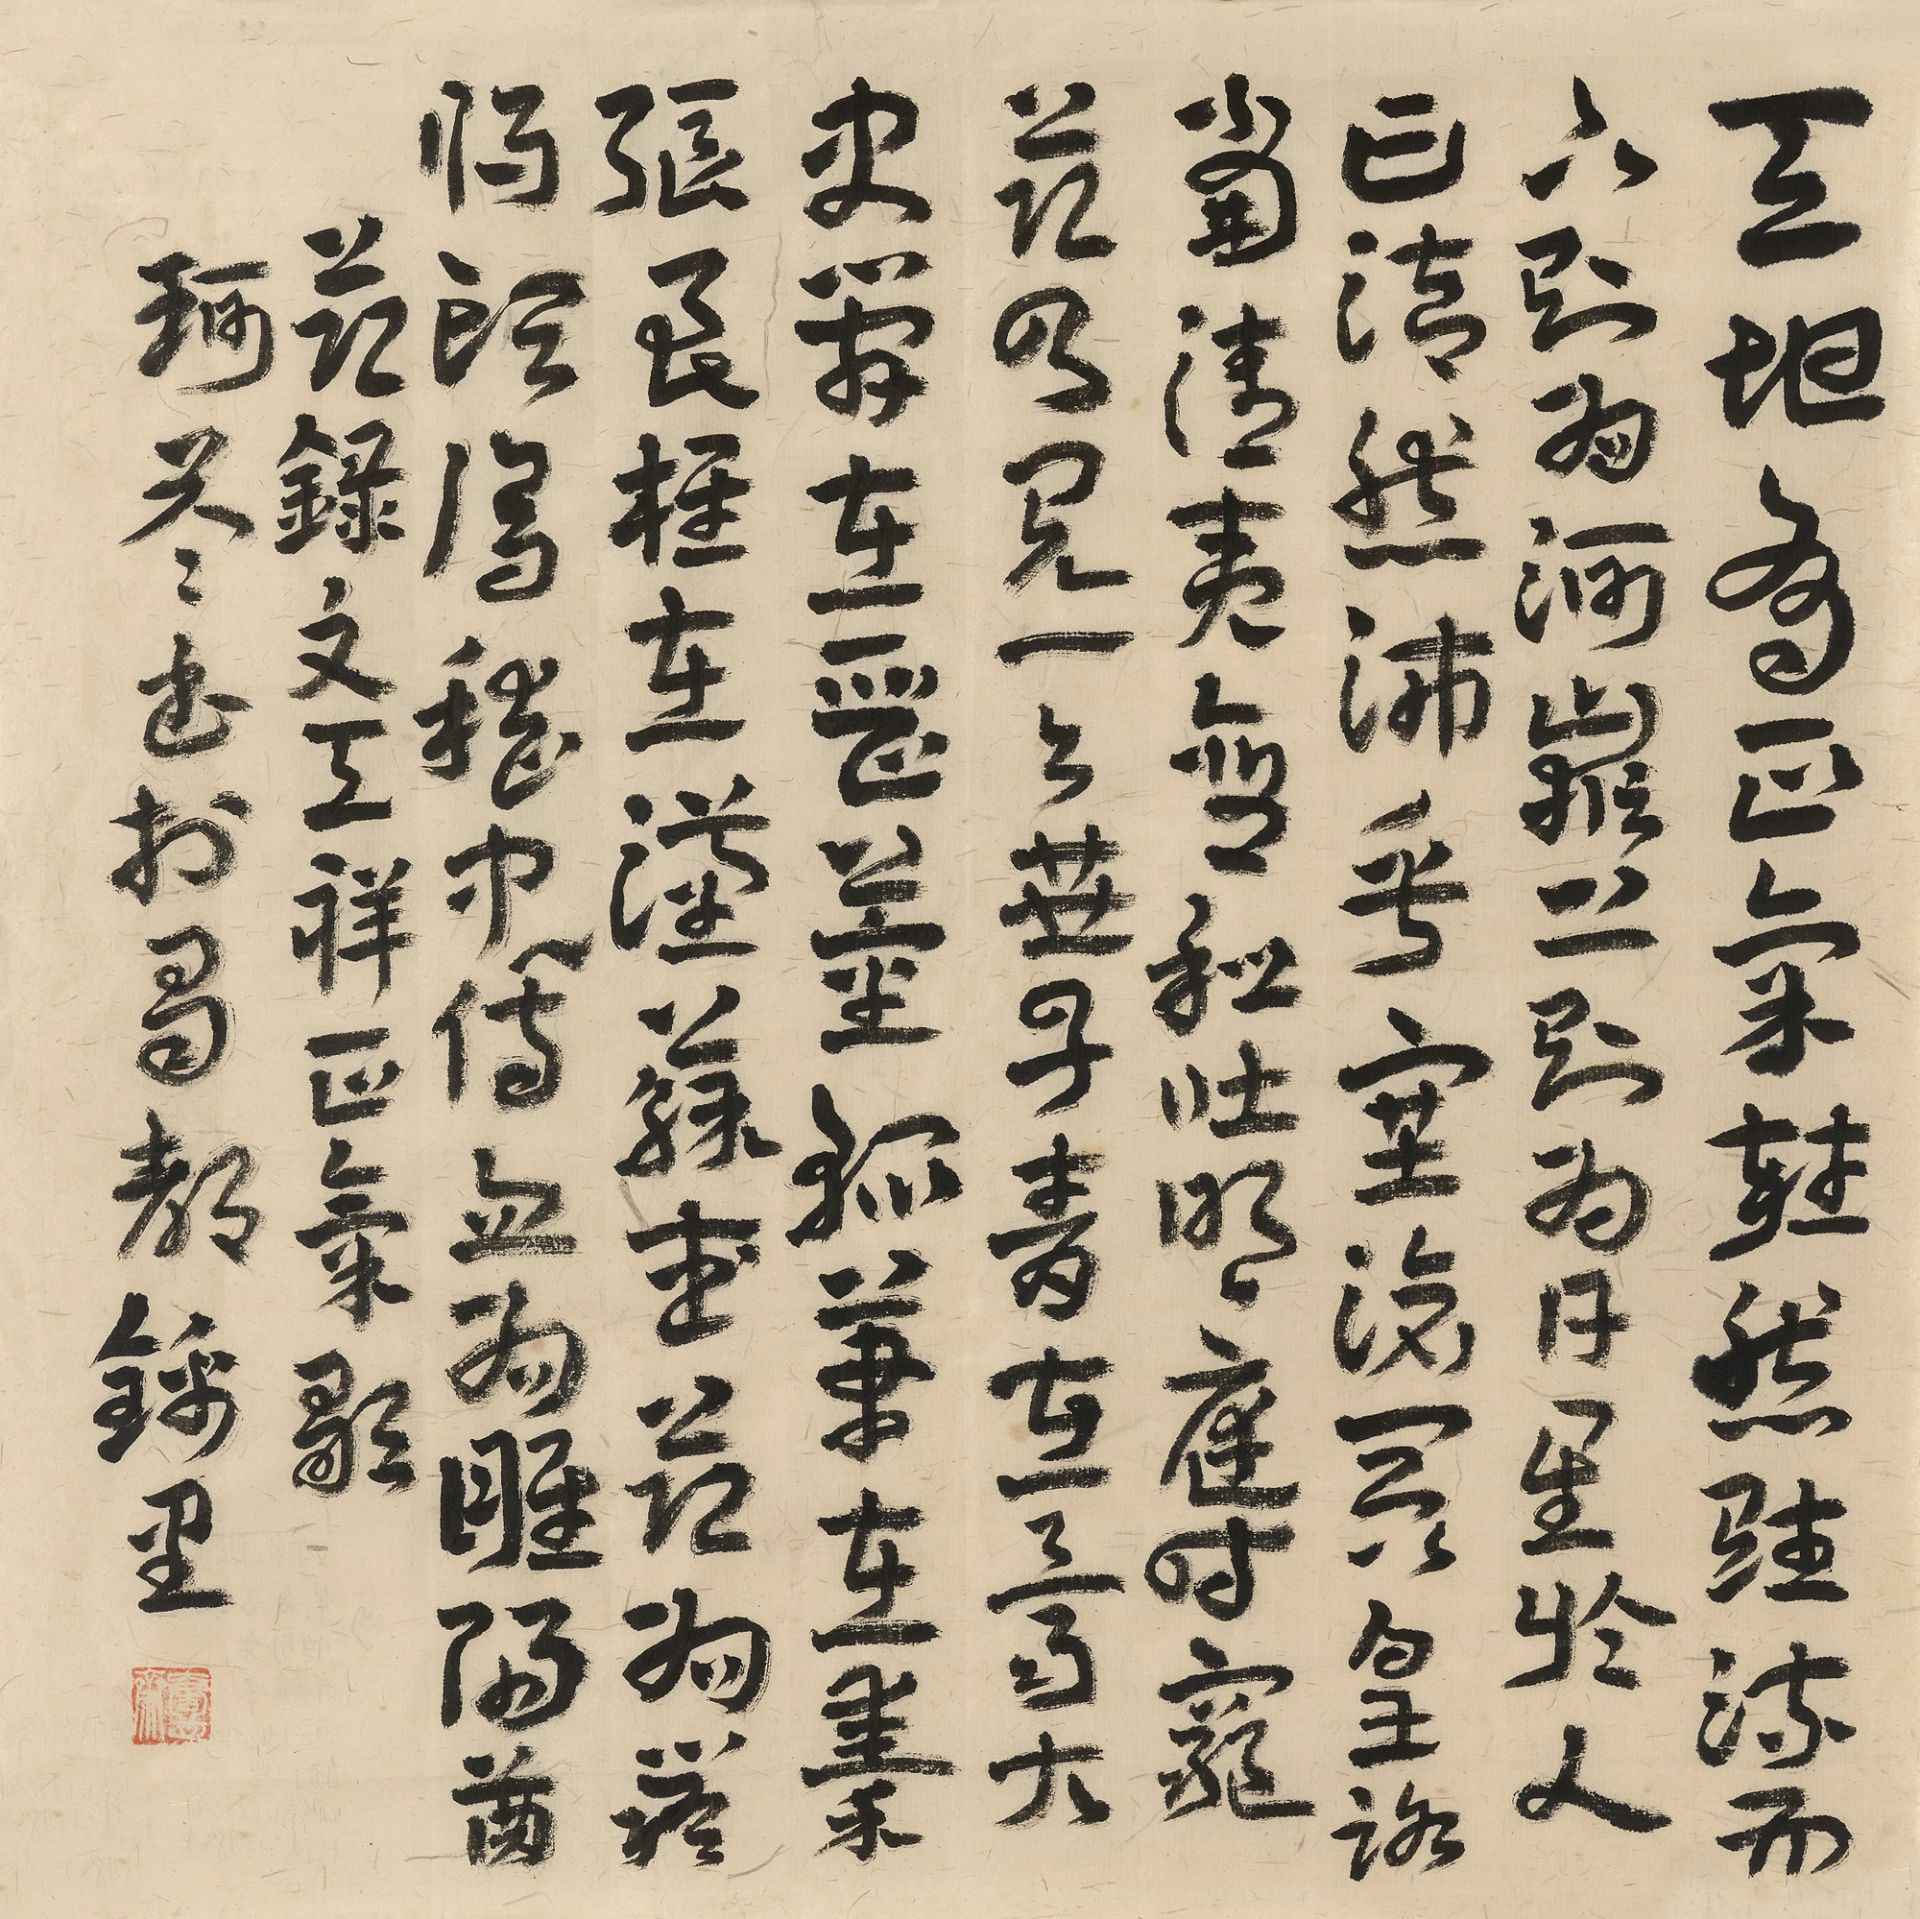 天地有正氣雜然賦流
下則為河嶽上則為日星於人
曰浩然沛乎塞滄冥皇路
當清夷含和吐明庭時窮
節乃見一一垂丹青在齊太
史簡在晉董狐筆在秦
張良椎在漢蘇武節為嚴
將頭為嵇中侍血為睢陽齒
節錄文天祥正氣歌
珂冬書於蜀都錦里